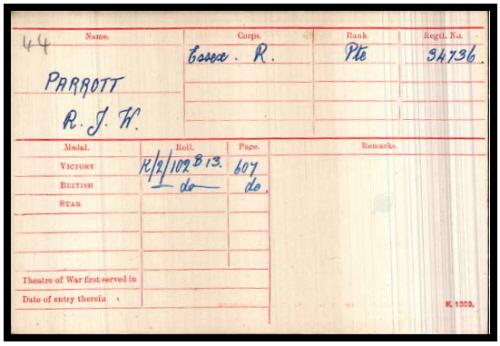 44
Name. Corps. Rank Regtl. No.
Essex. R. Pte 34736.
PARROTT
R. J. W.
Medal. Roll. Page. Remarks.
VICTORY K/2/102 B 13. 607
BRITISH — do — do.
STAR
Theatre of War first served in
Date of entry therein
K. 1380.